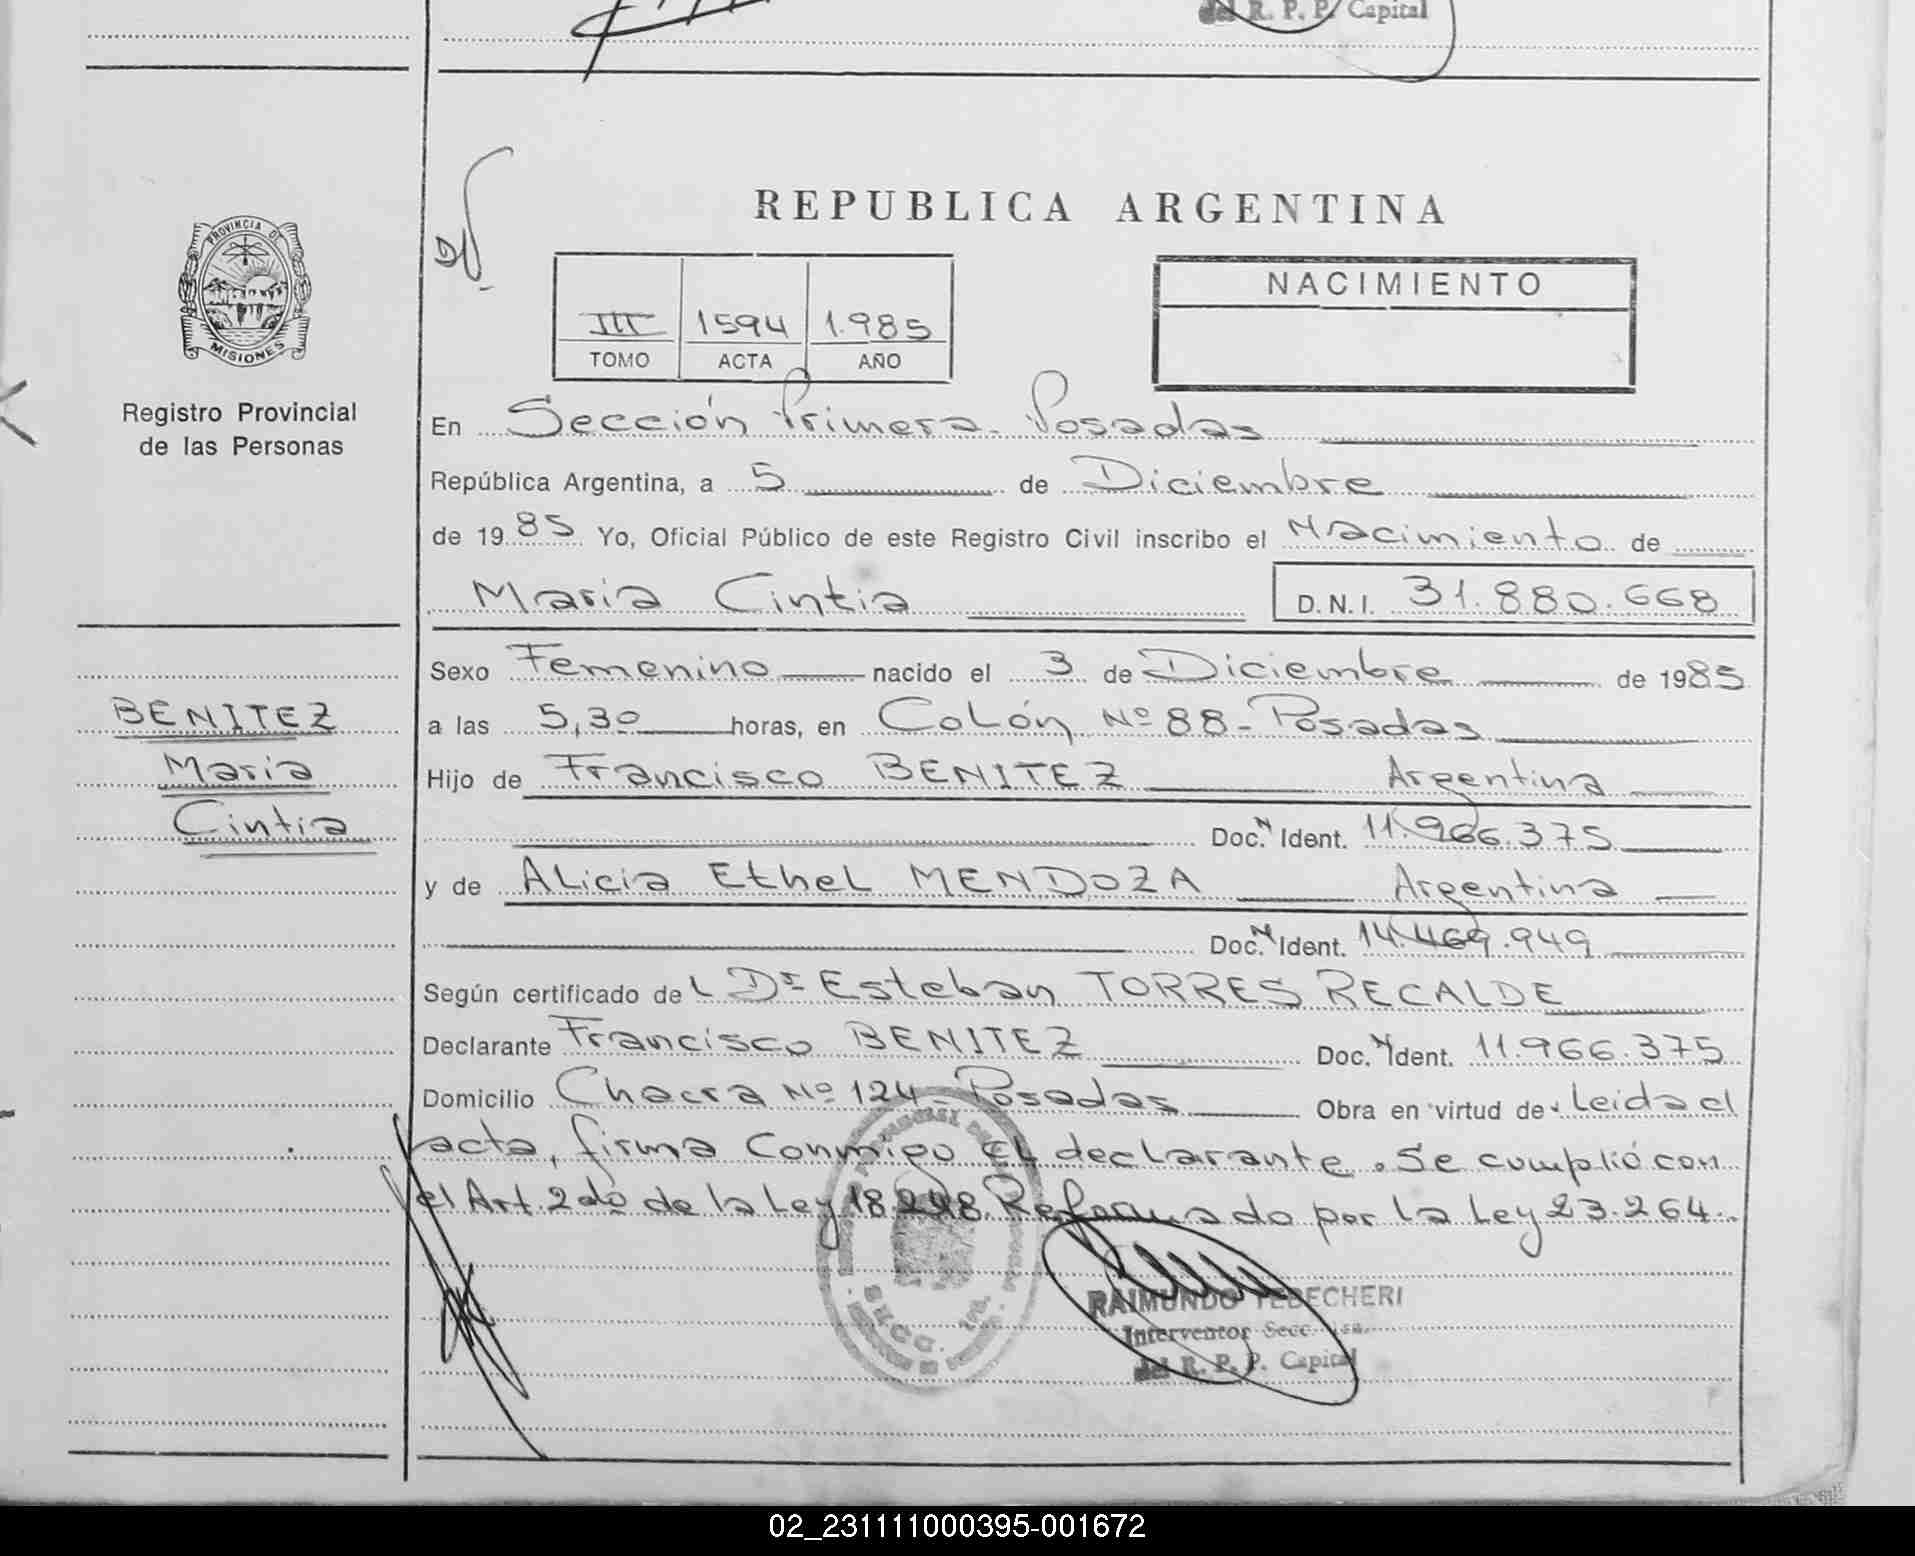 del R. P. P. Capital
REPUBLICA ARGENTINA
PROVINCIA DE
MISIONES
Registro Provincial
de las Personas
III 1594 1.985
TOMO ACTA AÑO
NACIMIENTO
En Sección Primera - Posadas
República Argentina, a 5 de Diciembre
de 1985 Yo, Oficial Público de este Registro Civil inscribo el Nacimiento de
Maria Cintia D.N.I. 31.880.668
Sexo Femenino nacido el 3 de Diciembre de 1985
BENITEZ
Maria
Cintia
a las 5,30 horas, en Colón Nº 88 - Posadas
Hijo de Francisco BENITEZ Argentina
Doc. N Ident. 11.966.375
y de Alicia Ethel MENDOZA Argentina
Doc. N Ident. 14.469.949
Según certificado del Dr Esteban TORRES RECALDE
Declarante Francisco BENITEZ Doc. N Ident. 11.966.375
Domicilio Chacra Nº 124 - Posadas Obra en virtud de: Leida el
acta, firma conmigo el declarante. Se cumplió con
el Art. 2do de la Ley 18.248. Reformado por la Ley 23.264.
RAIMUNDO TEDECHERI
Interventor Secc. 1ra.
del R. P. P. Capital
SECC. 1ra.
02_231111000395-001672